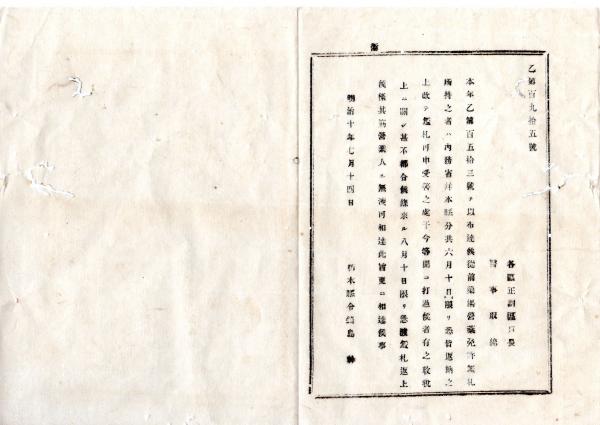 乙第百九拾五號
各區正副區戸長
醫事取締
本年乙第百五拾三號ヲ以布達候從前藥場營業免許鑑札
所持之者ハ內務省幷本縣分共六月十日限リ悉皆返納之
上改テ鑑札可申受筈之處于今等閑ニ打過候者有之收稅
上ニ關シ甚不都合候條來ル八月十日限リ悉皆鑑札返上
候樣其筋營業人ヘ無洩可相達此旨更ニ相達候事
明治十年七月十四日
栃木縣令鍋島幹